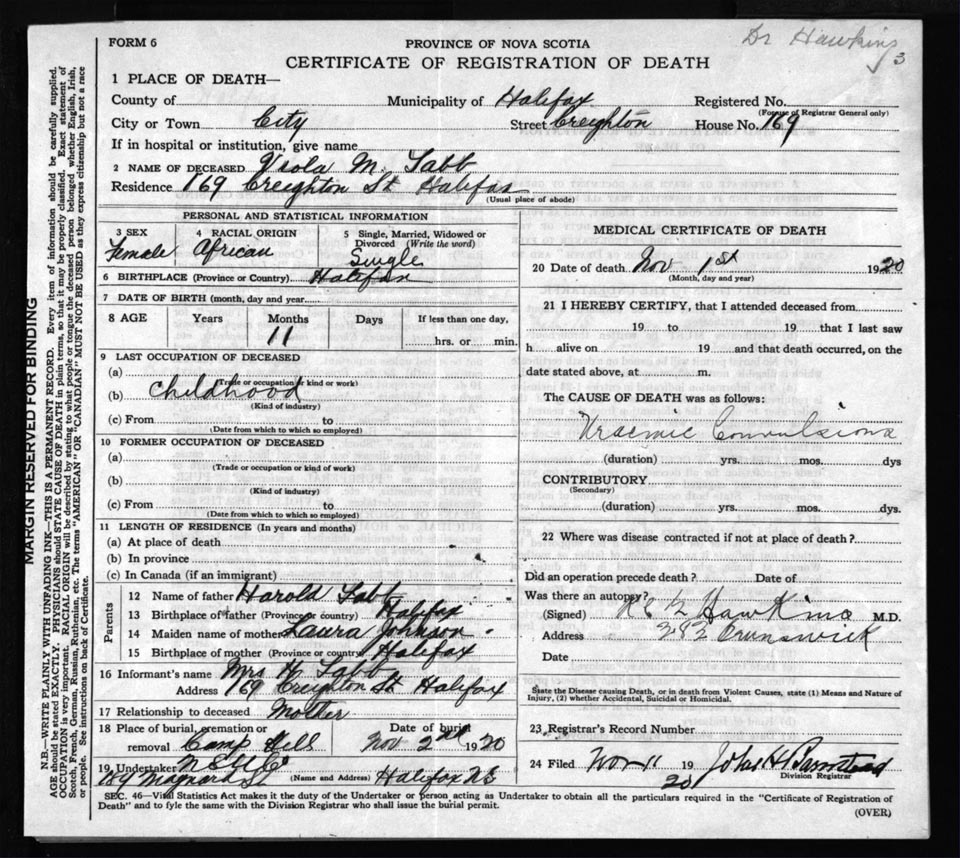 Dr Hawkins
3
FORM 6
PROVINCE OF NOVA SCOTIA
CERTIFICATE OF REGISTRATION OF DEATH
1 PLACE OF DEATH—
County of Municipality of Halifax Registered No.
(For use of Registrar General only)
City or Town City Street Creighton House No. 169
If in hospital or institution, give name
2 NAME OF DECEASED Viola M. Tabb
Residence 169 Creighton St Halifax
(Usual place of abode)
PERSONAL AND STATISTICAL INFORMATION
3 SEX 4 RACIAL ORIGIN 5 Single, Married, Widowed or Divorced (Write the word)
Female African Single
6 BIRTHPLACE (Province or Country) Halifax
7 DATE OF BIRTH (month, day and year)
8 AGE Years Months Days If less than one day,
11 hrs. or min.
9 LAST OCCUPATION OF DECEASED
(a)
(Trade or occupation or kind or work)
(b) Childhood
(Kind of industry)
(c) From to
(Date from which to which so employed)
10 FORMER OCCUPATION OF DECEASED
(a)
(Trade or occupation or kind of work)
(b)
(Kind of industry)
(c) From to
(Date from which to which so employed)
11 LENGTH OF RESIDENCE (In years and months)
(a) At place of death
(b) In province
(c) In Canada (if an immigrant)
Parents
12 Name of father Harold Tabb
13 Birthplace of father (Province or country) Halifax
14 Maiden name of mother Laura Johnson
15 Birthplace of mother (Province or country) Halifax
16 Informant's name Mrs H. Tabb
Address 169 Creighton St Halifax
17 Relationship to deceased Mother
18 Place of burial, cremation or removal Camp Hill Date of burial Nov 2nd 1920
19 Undertaker N.S.U.Co
184 Maynard St (Name and Address) Halifax NS
MEDICAL CERTIFICATE OF DEATH
20 Date of death Nov 1st 1920
(Month, day and year)
21 I HEREBY CERTIFY, that I attended deceased from
19 to 19 that I last saw
h alive on 19 and that death occurred, on the
date stated above, at m.
The CAUSE OF DEATH was as follows:
Uraemic Convulsions
(duration) yrs. mos. dys
CONTRIBUTORY
(Secondary)
(duration) yrs. mos. dys.
22 Where was disease contracted if not at place of death?
Did an operation precede death? Date of
Was there an autopsy?
(Signed) Hawkins M.D.
Address 282 Brunswick
Date
State the Disease causing Death, or in death from Violent Causes, state (1) Means and Nature of
Injury, (2) whether Accidental, Suicidal or Homicidal.
23 Registrar's Record Number
24 Filed Nov 11 1920 John H Barnstead
Division Registrar
SEC. 46—Vital Statistics Act makes it the duty of the Undertaker or person acting as Undertaker to obtain all the particulars required in the "Certificate of Registration of
Death" and to fyle the same with the Division Registrar who shall issue the burial permit.
(OVER)
MARGIN RESERVED FOR BINDING
N.B.—WRITE PLAINLY WITH UNFADING INK—THIS IS A PERMANENT RECORD. Every item of information should be carefully supplied.
AGE should be stated EXACTLY. PHYSICIANS should STATE CAUSE OF DEATH in plain terms, so that it may be properly classified. Exact statement of
OCCUPATION is very important. RACIAL ORIGIN will be described by stating to what people or tongue the deceased person belonged whether English, Irish,
Scotch, French, German, Russian, Ruthenian, etc. The terms "AMERICAN" OR "CANADIAN" MUST NOT BE USED as they express citizenship but not a race
or people. See instructions on back of Certificate.